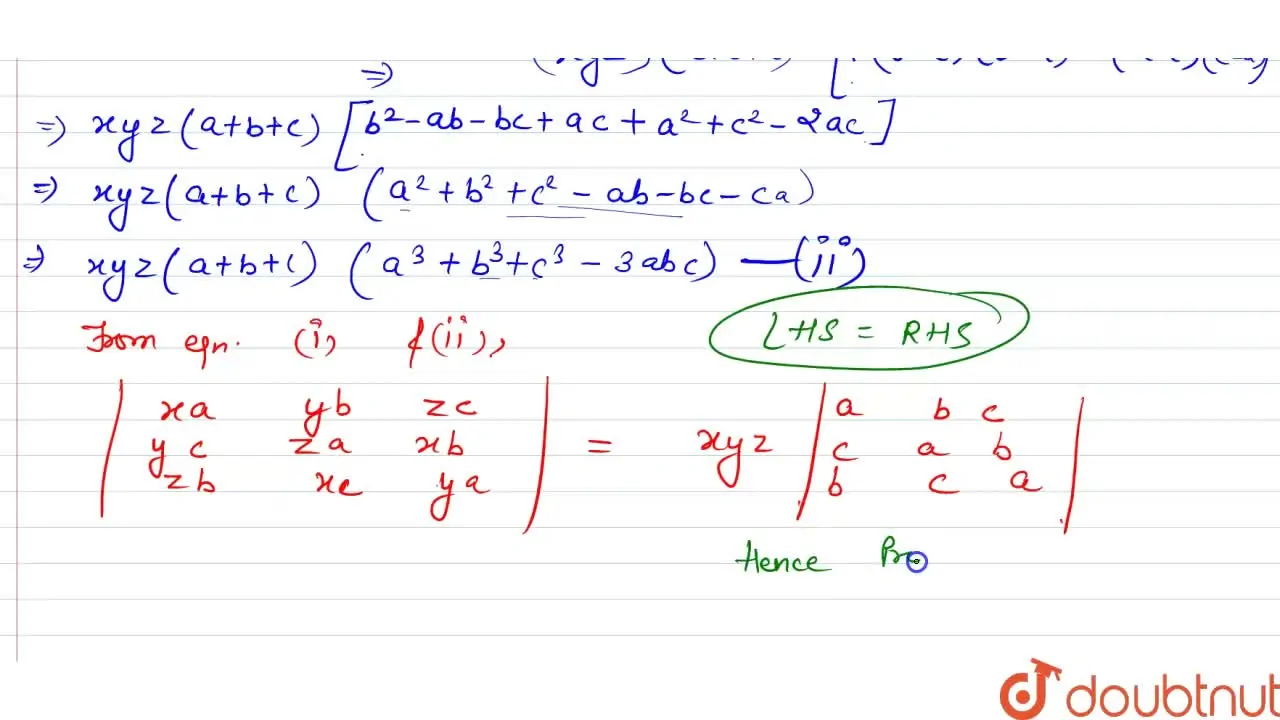 ⇒ xyz(a+b+c) [b²-ab-bc+ac+a²+c²-2ac]
⇒ xyz(a+b+c) (a²+b²+c²-ab-bc-ca)
⇒ xyz(a+b+c) (a³+b³+c³-3abc) —(ii)
From eqn. (i) &(ii),
LHS = RHS
| xa yb zc | = xyz | a b c |
| yc za xb | | c a b |
| zb xc ya | | b c a |
Hence
doubtnut